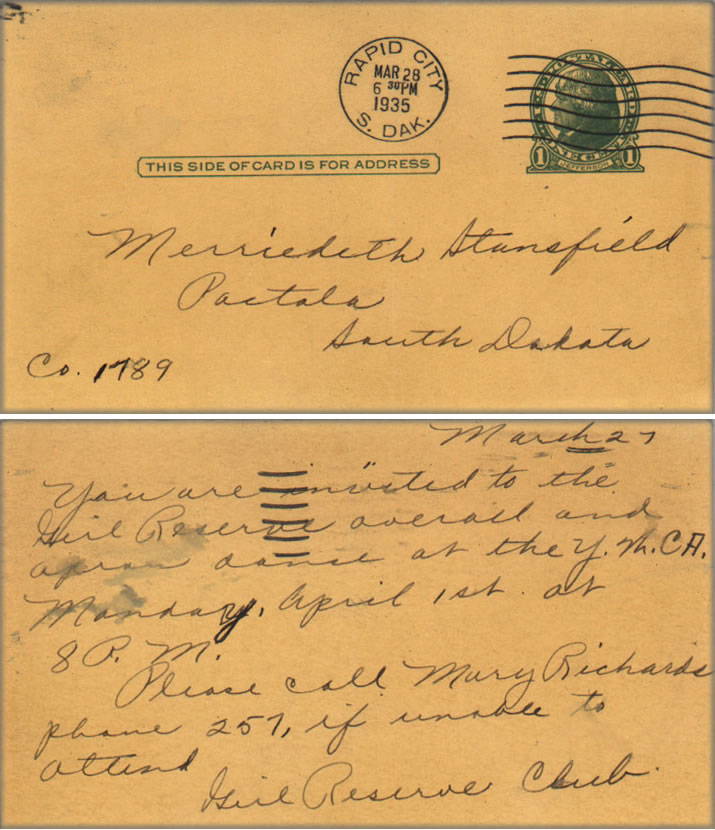 RAPID CITY
MAR 28
6 30 PM
1935
S. DAK.
1 ONE CENT 1
JEFFERSON
THIS SIDE OF CARD IS FOR ADDRESS
Merriedith Stansfield
Pactola
South Dakota
Co. 1789
March 27
You are invited to the
Girl Reserve overall and
apron dance at the Y.M.C.A.
Monday, April 1st. at
8 P. M.
Please call Mary Richards
phone 257, if unable to
attend
Girl Reserve Club.